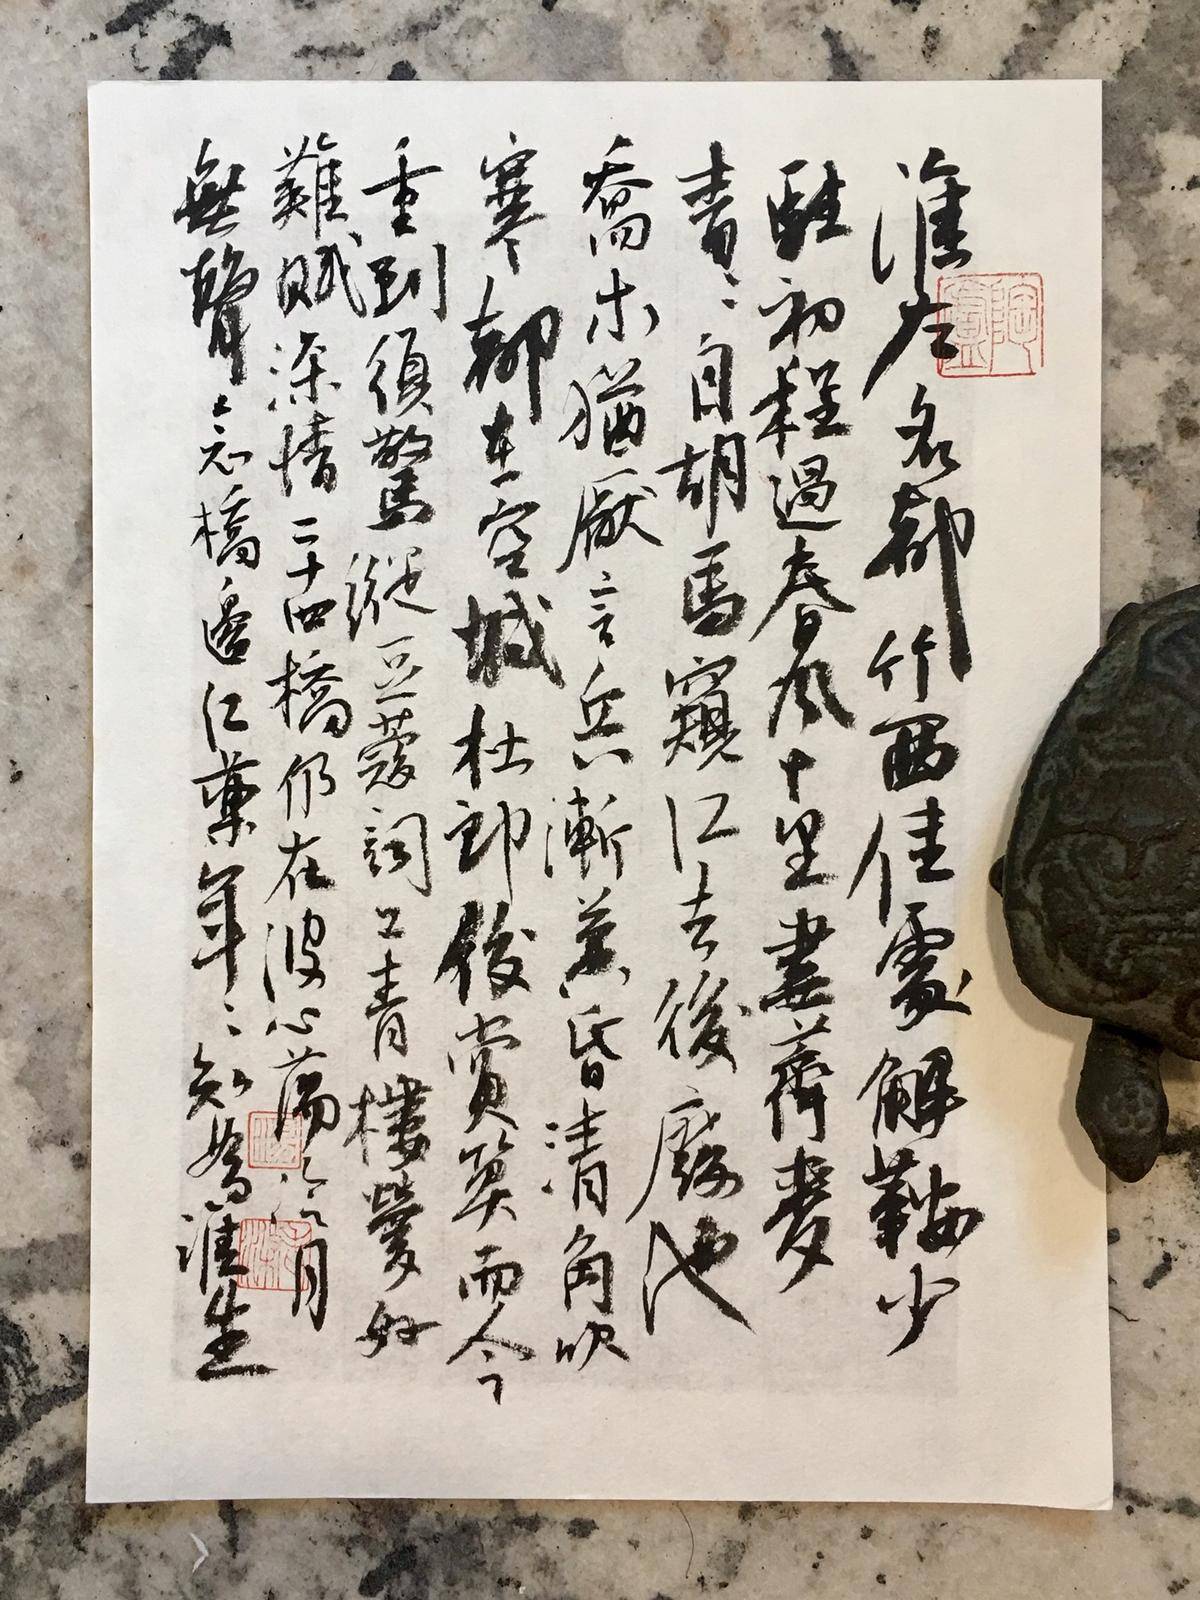 淮左名都竹西佳處解鞍少
駐初程過春風十里盡薺麥
青〻自胡馬窺江去後廢池
喬木猶厭言兵漸黃昏清角吹
寒都在空城杜郎俊賞算而今
重到須驚縱豆蔻詞工青樓夢好
難賦深情二十四橋仍在波心蕩冷月
無聲念橋邊紅藥年〻知為誰生